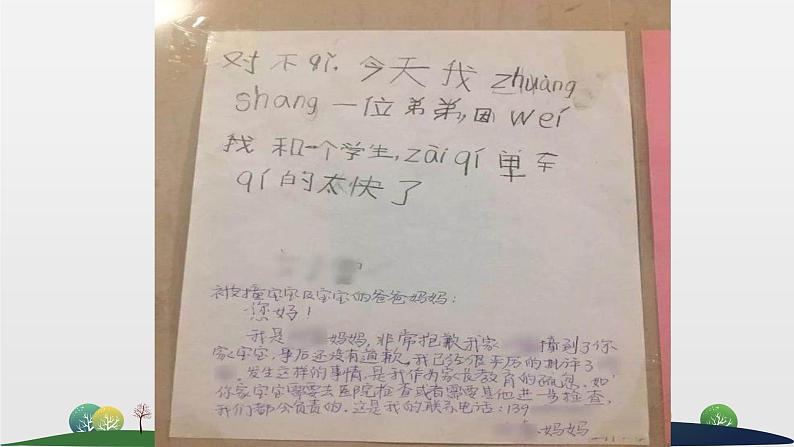 对不qǐ. 今天我 zhuàng
shang 一位弟弟,因 weí
找 和一个学生,zài qí 单车
qí 的太快了
被撞宝宝及宝宝的爸爸妈妈:
您好!
我是 妈妈,非常抱歉我家 撞到了你
家宝宝,事后还没有道歉,我已给很严厉的批评了
。发生这样的事情,是我作为家长教育的疏忽.如
你家宝宝需要去医院检查或者需要其他进一步检查,
我们都会负责的.这是我的联系电话:139
妈妈